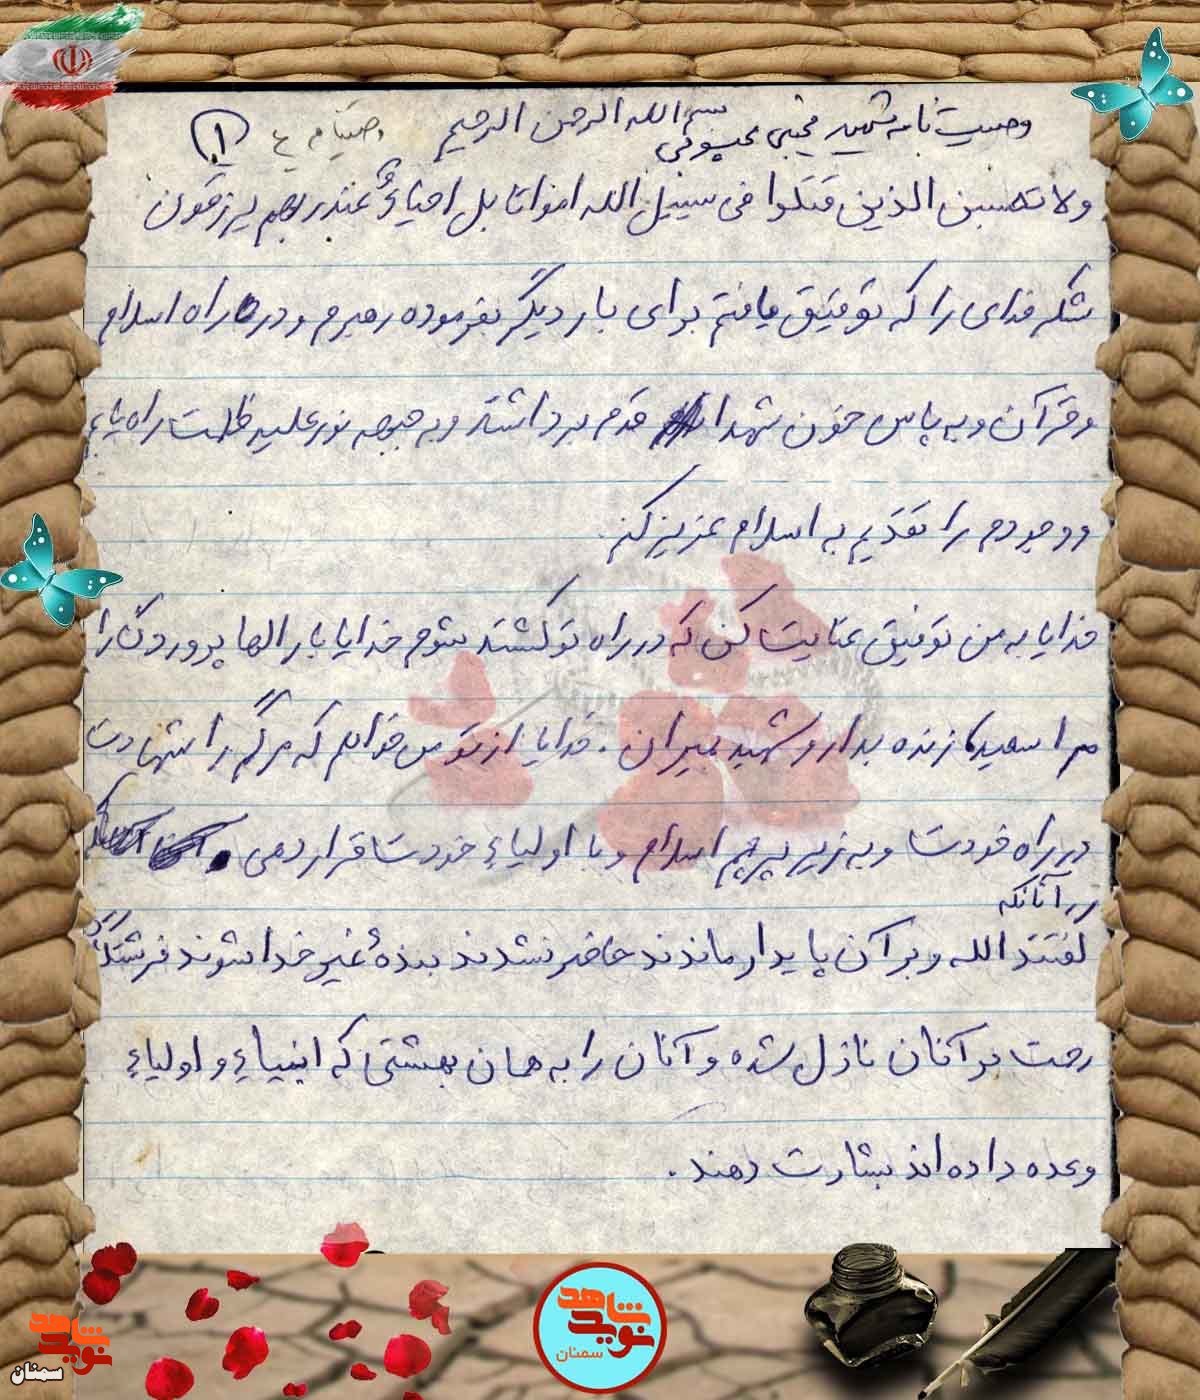 وصیت نامه شهید مجتبی بسم الله الرحمن الرحیم ۱
ولا تحسبن الذین قتلوا فی سبیل الله امواتا بل احیاءٌ عند ربهم یرزقون
شکر خدای را که توفیق یافتم برای بار دیگر بفرموده رهبرم و در راه اسلام
و قرآن و به پاس خون شهدا قدم برداشته و به جبهه نور علیه ظلمت راه یابم
و وجودم را تقدیم به اسلام عزیز کنم.
خدایا به من توفیق عنایت کن که در راه تو کشته شوم خدایا بار الها پروردگارا
مرا سعید زنده بدار و شهید بمیران. خدایا از تو می خواهم که مرگم را شهادت
در راه خودت و به زیر پرچم اسلام و با اولیاء خودت قرار دهی.
آنانکه
گفتند الله و بر آن پایدار ماندند حاضر نشدند بندهٔ غیر خدا شوند فرشتگان
رحمت بر آنان نازل شده و آنان را به همان بهشتی که انبیاء و اولیاء
وعده داده اند بشارت دهند.
نوید شاهد
سمنان
نوید شاهد
سمنان